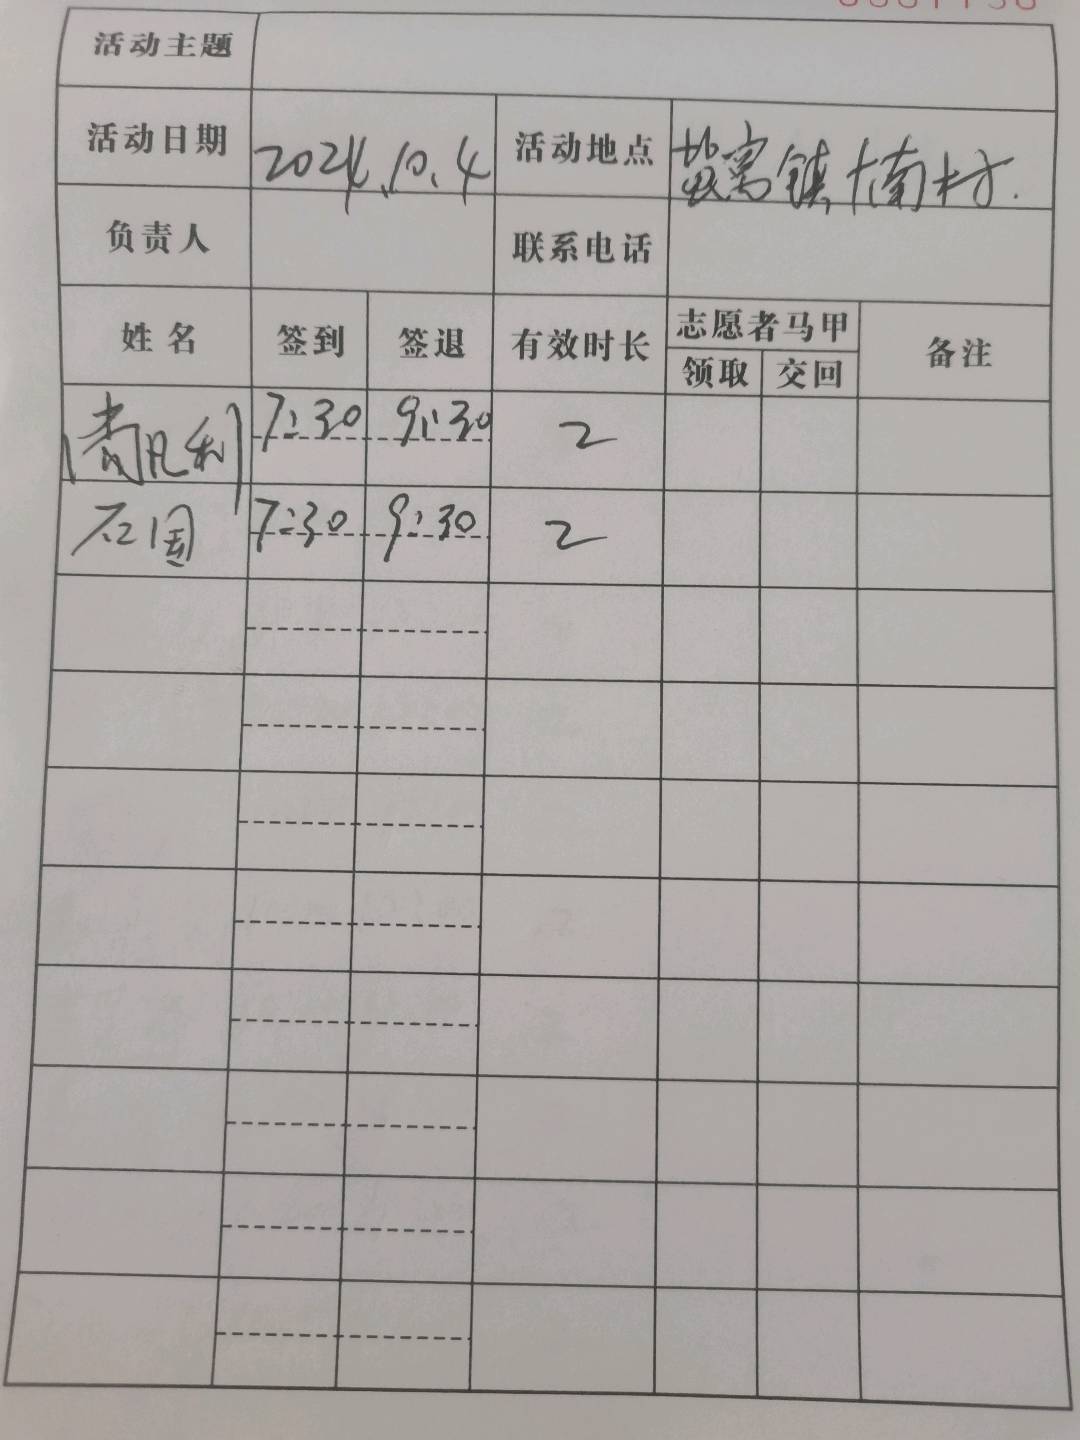 活动主题
活动日期 2024.10.4 活动地点 镇十南村.
负责人 联系电话
姓名 签到 签退 有效时长 志愿者马甲 备注
领取 交回
7:30 9:30 2
石国 7:30 9:30 2